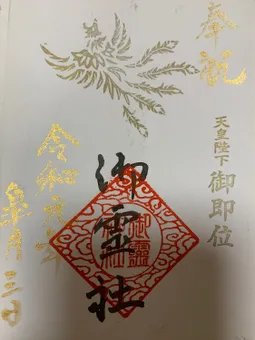 奉祝
天皇陛下
御即位
御霊社
御靈社
令和元年
皐月三日